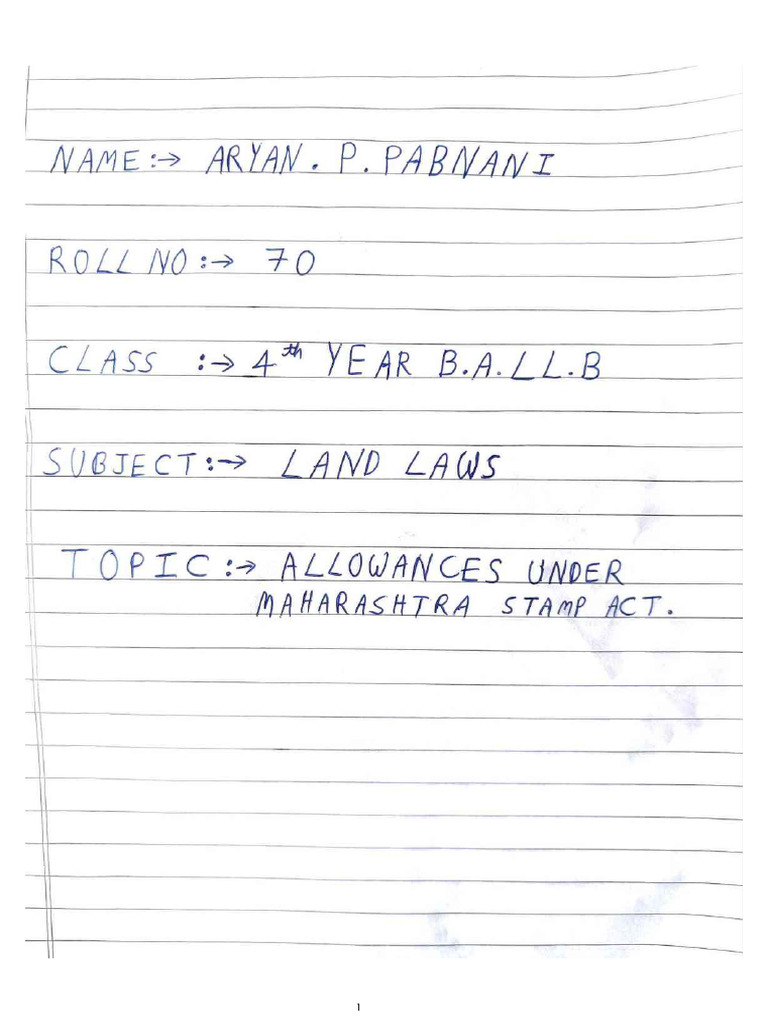 NAME:→ ARYAN. P. PABNANI
ROLL NO:→ 70
CLASS :→ 4th YEAR B.A.LL.B
SUBJECT:→ LAND LAWS
TOPIC:→ ALLOWANCES UNDER
MAHARASHTRA STAMP ACT.
1